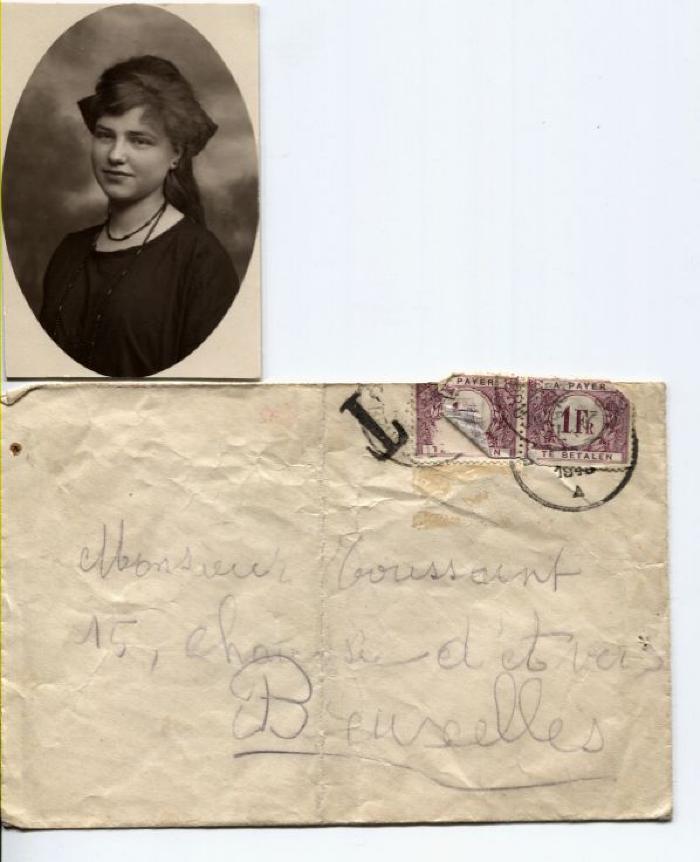 T
A PAYER
A PAYER
1 FR
TE BETALEN
1943
A
Monsieur Toussaint
15, chaussée d'
Bruxelles